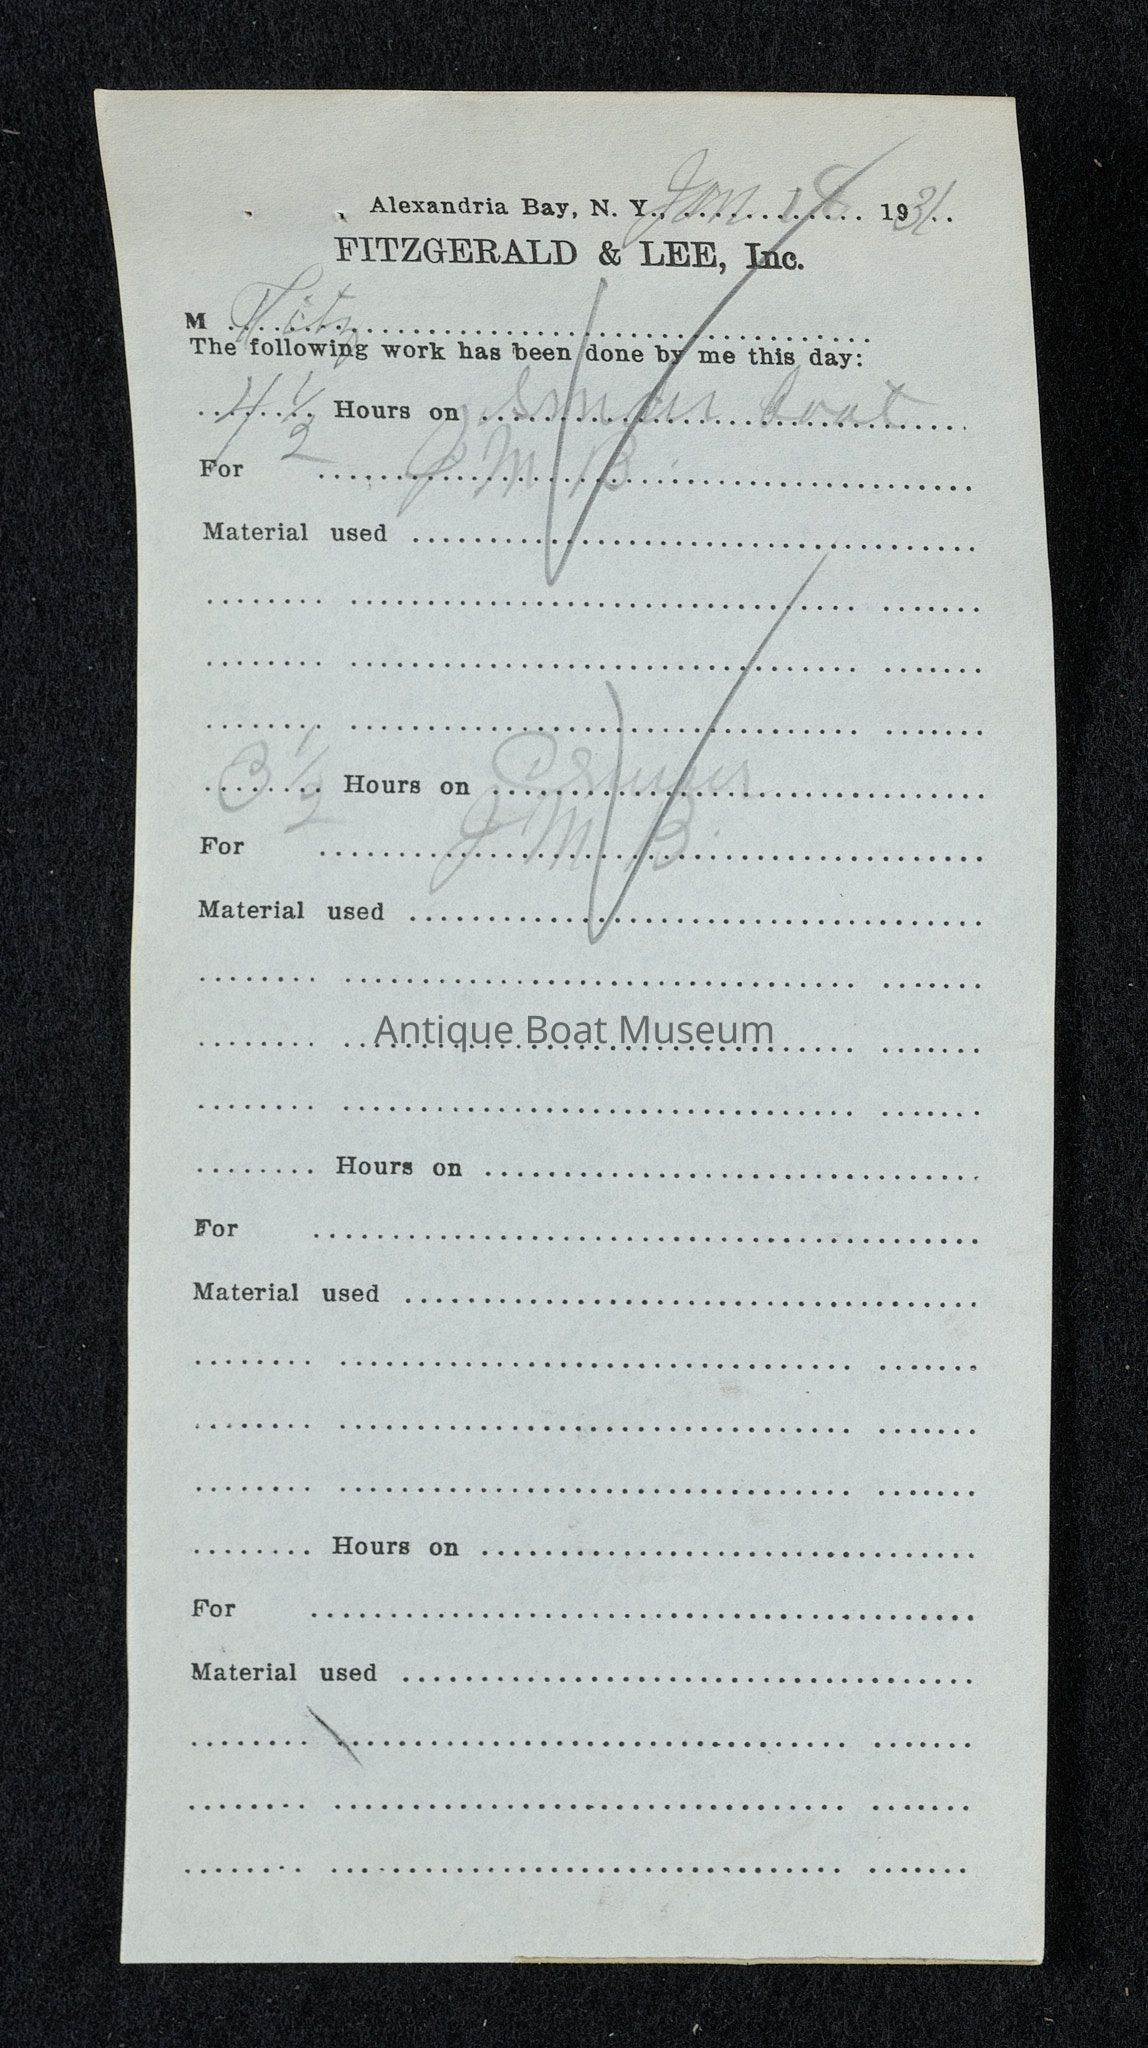 Alexandria Bay, N. Y., Jan 18 1931
FITZGERALD & LEE, Inc.
M Fitz
The following work has been done by me this day:
4 1/2 Hours on boat
For J M B
Material used
3 1/2 Hours on
For J M B.
Material used
Antique Boat Museum
Hours on
For
Material used
Hours on
For
Material used